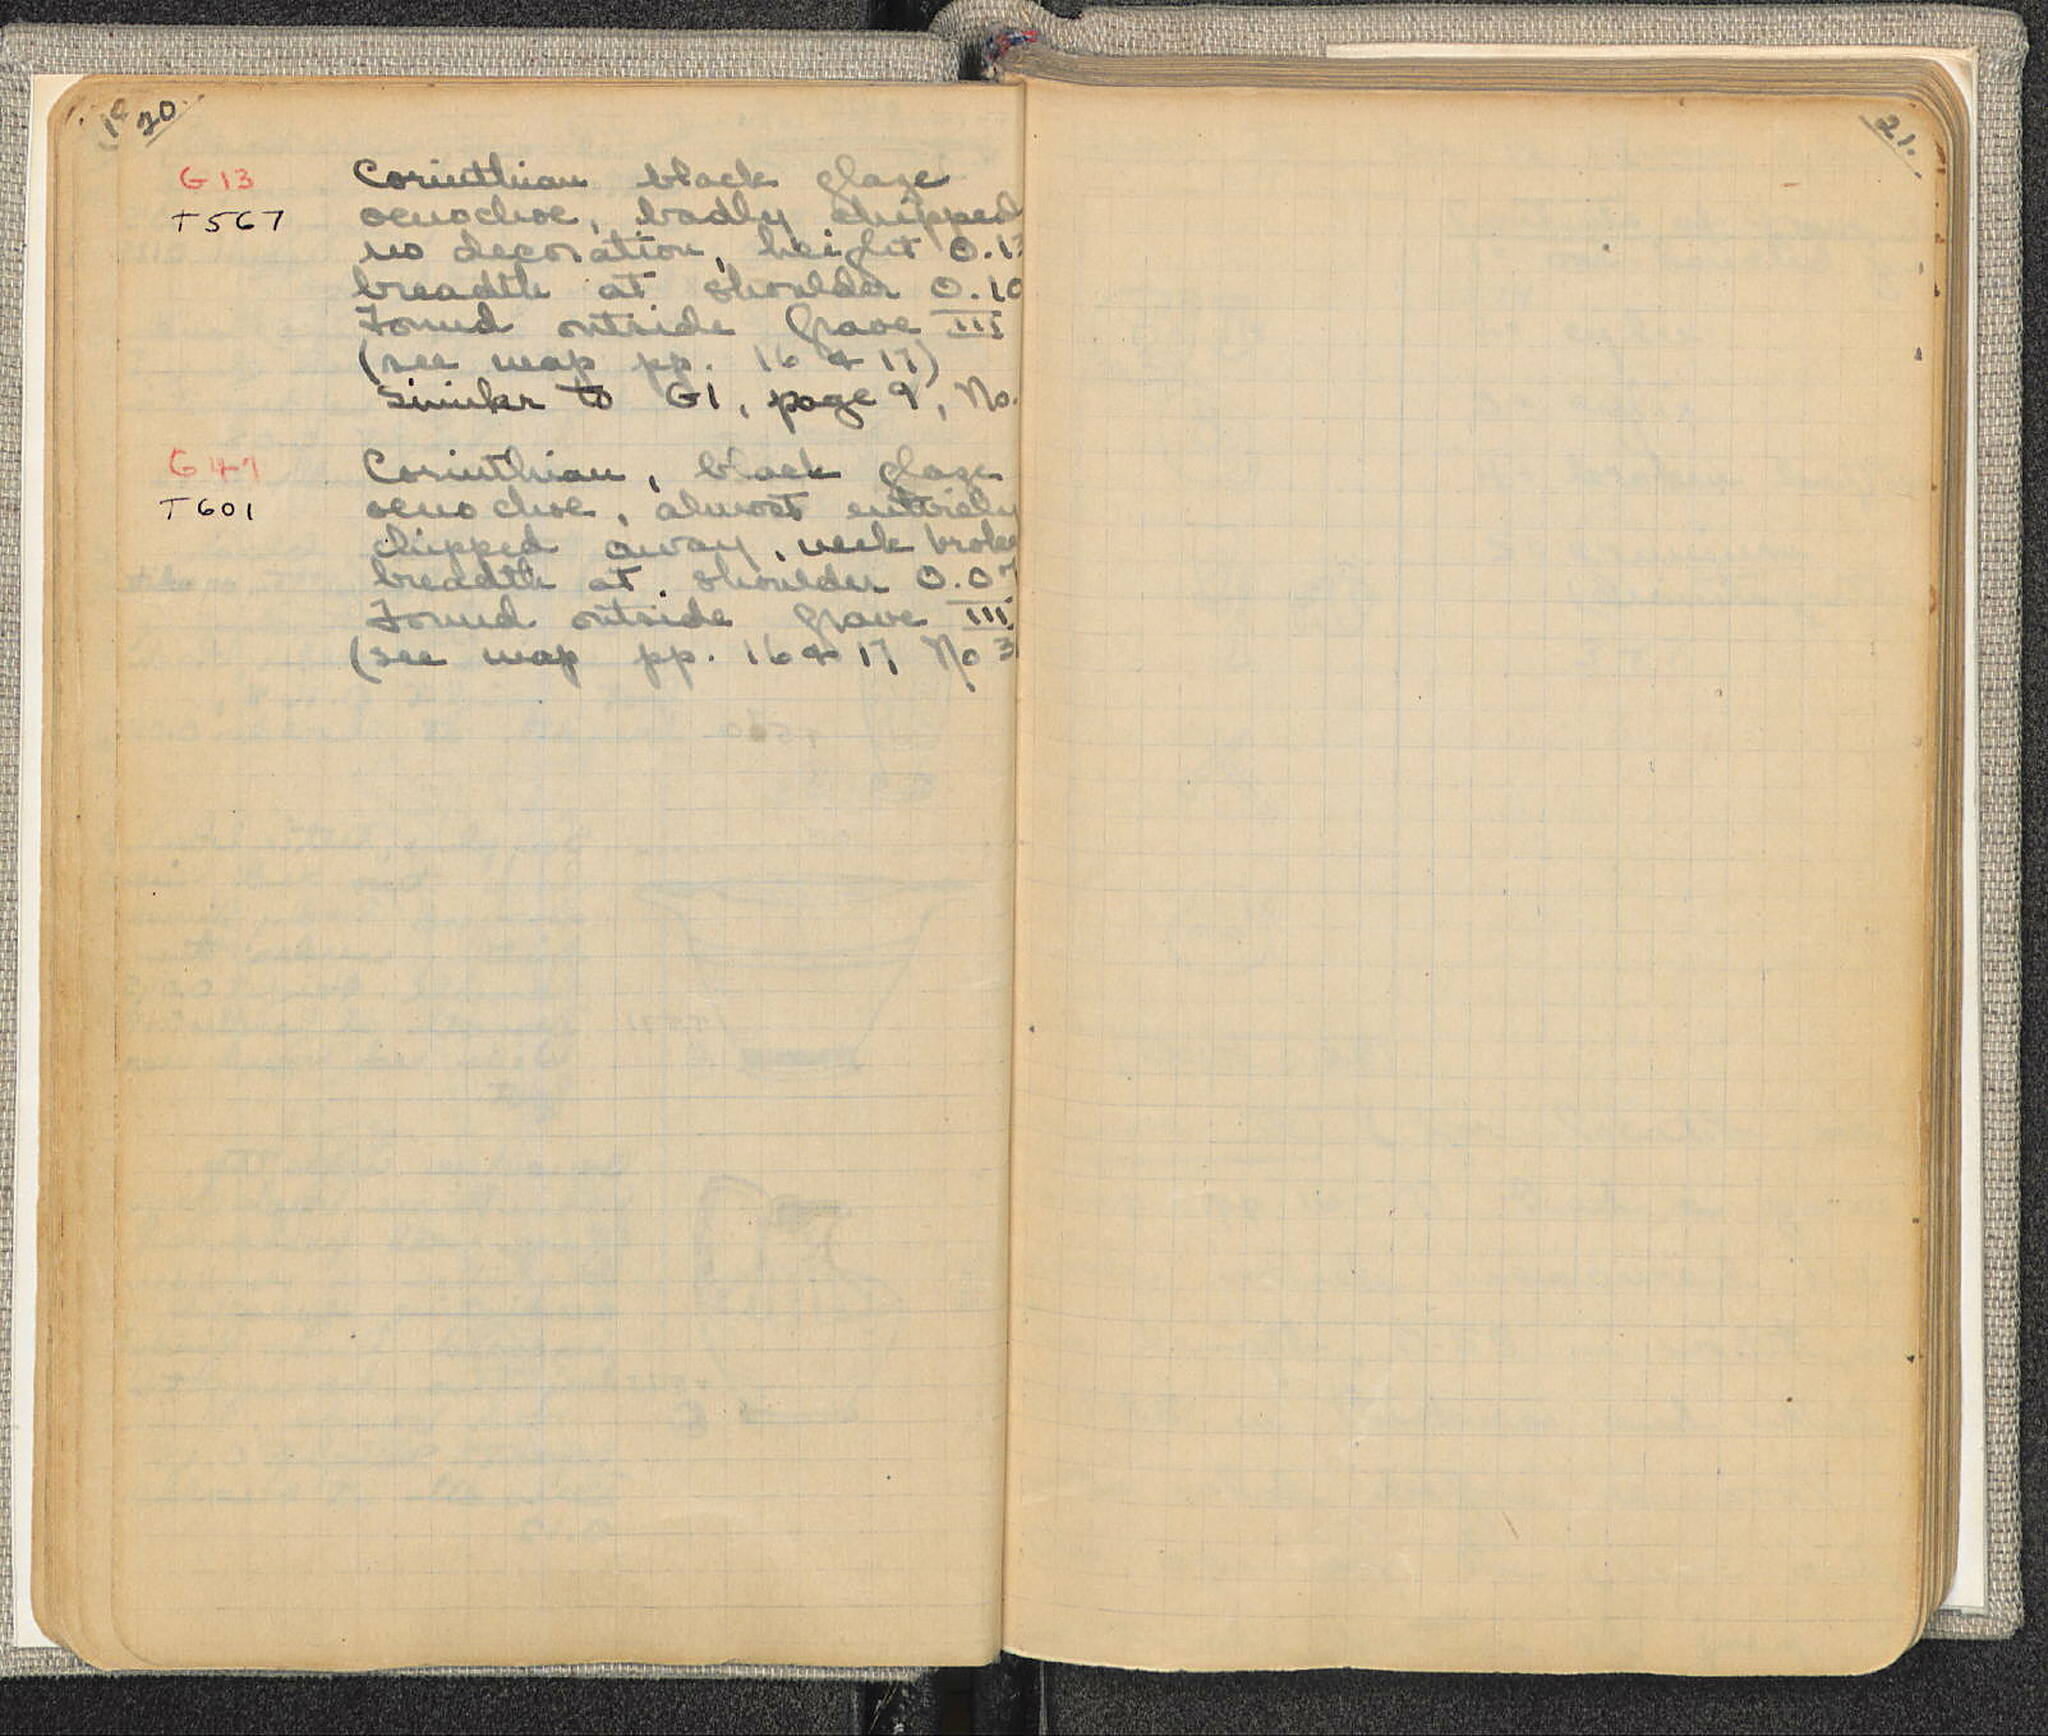 20
G13 Corinthian black glaze
T567 oenochoe, badly chipped
no decoration, height 0.13
breadth at shoulder 0.10
Found outside Grave III
(see map pp. 16 & 17)
Similar to G1, page 9, No.
G47 Corinthian, black glaze
T601 oenochoe, almost entirely
chipped away, neck broke
breadth at shoulder 0.07
Found outside grave III
(see map pp. 16 & 17 No 3
21.